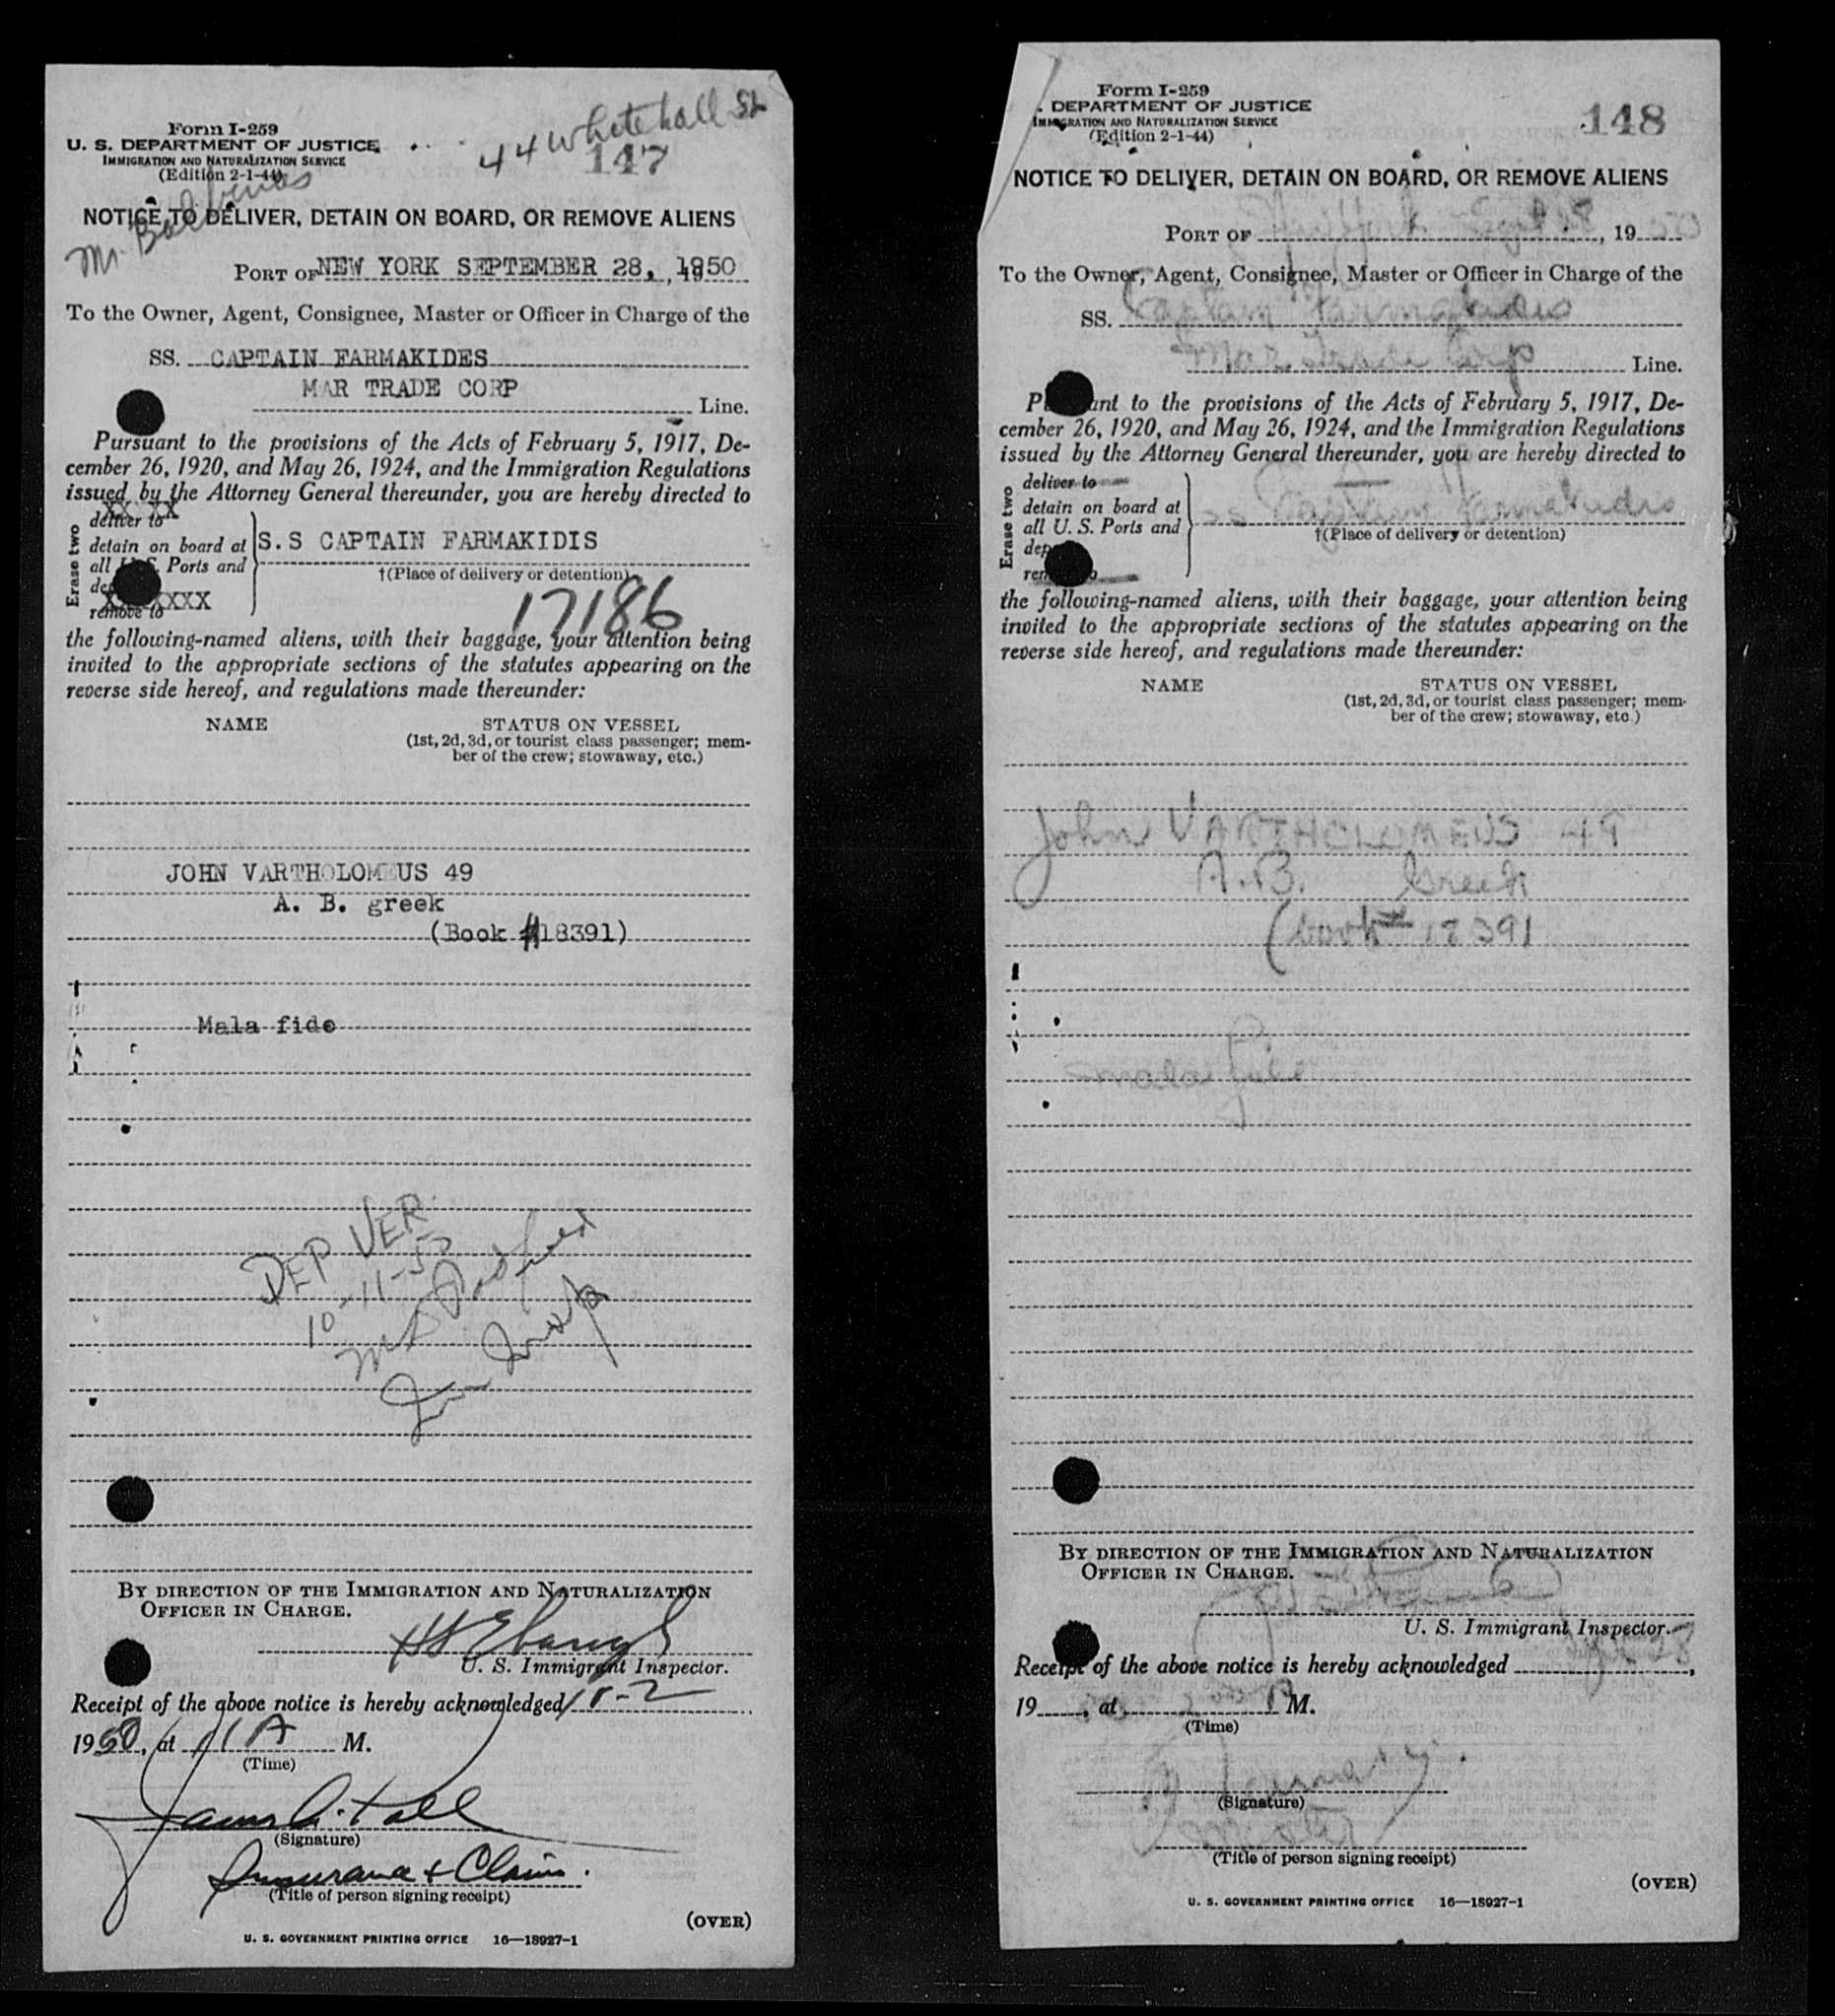 44 Whitehall St
Form I-259
147
U. S. DEPARTMENT OF JUSTICE
IMMIGRATION AND NATURALIZATION SERVICE
(Edition 2-1-44)
Mr.
NOTICE TO DELIVER, DETAIN ON BOARD, OR REMOVE ALIENS
PORT OF NEW YORK SEPTEMBER 28, 1950
To the Owner, Agent, Consignee, Master or Officer in Charge of the
SS. CAPTAIN FARMAKIDES
MAR TRADE CORP
Line.
Pursuant to the provisions of the Acts of February 5, 1917, De-
cember 26, 1920, and May 26, 1924, and the Immigration Regulations
issued by the Attorney General thereunder, you are hereby directed to
Erase two
deliver to
detain on board at
all U. S. Ports and
remove to
S.S CAPTAIN FARMAKIDIS
†(Place of delivery or detention)
17186
the following-named aliens, with their baggage, your attention being
invited to the appropriate sections of the statutes appearing on the
reverse side hereof, and regulations made thereunder:
NAME STATUS ON VESSEL
(1st, 2d, 3d, or tourist class passenger; mem-
ber of the crew; stowaway, etc.)
JOHN VARTHOLOMEUS 49
A. B. greek
(Book #18391)
Mala fide
DEP VER
10-11-50
BY DIRECTION OF THE IMMIGRATION AND NATURALIZATION
OFFICER IN CHARGE.
U. S. Immigrant Inspector.
Receipt of the above notice is hereby acknowledged 10-2
1950, at 11 A M.
(Time)
(Signature)
Insurance & Claim.
(Title of person signing receipt)
(OVER)
U. S. GOVERNMENT PRINTING OFFICE 16—18927-1
Form I-259
148
. DEPARTMENT OF JUSTICE
IMMIGRATION AND NATURALIZATION SERVICE
(Edition 2-1-44)
NOTICE TO DELIVER, DETAIN ON BOARD, OR REMOVE ALIENS
PORT OF New York Sept 28, 1950
To the Owner, Agent, Consignee, Master or Officer in Charge of the
SS. Captain Farmakidis
Mar Trade Corp
Line.
Pursuant to the provisions of the Acts of February 5, 1917, De-
cember 26, 1920, and May 26, 1924, and the Immigration Regulations
issued by the Attorney General thereunder, you are hereby directed to
Erase two
deliver to
detain on board at
all U. S. Ports and
ss Captain Farmakidis
†(Place of delivery or detention)
the following-named aliens, with their baggage, your attention being
invited to the appropriate sections of the statutes appearing on the
reverse side hereof, and regulations made thereunder:
NAME STATUS ON VESSEL
(1st, 2d, 3d, or tourist class passenger; mem-
ber of the crew; stowaway, etc.)
John VARTHOLOMEUS 49
A.B. Greek
(book # 18391
mala fide
BY DIRECTION OF THE IMMIGRATION AND NATURALIZATION
OFFICER IN CHARGE.
U. S. Immigrant Inspector.
Receipt of the above notice is hereby acknowledged
19 , at M.
(Time)
(Signature)
(Title of person signing receipt)
(OVER)
U. S. GOVERNMENT PRINTING OFFICE 16—18927-1